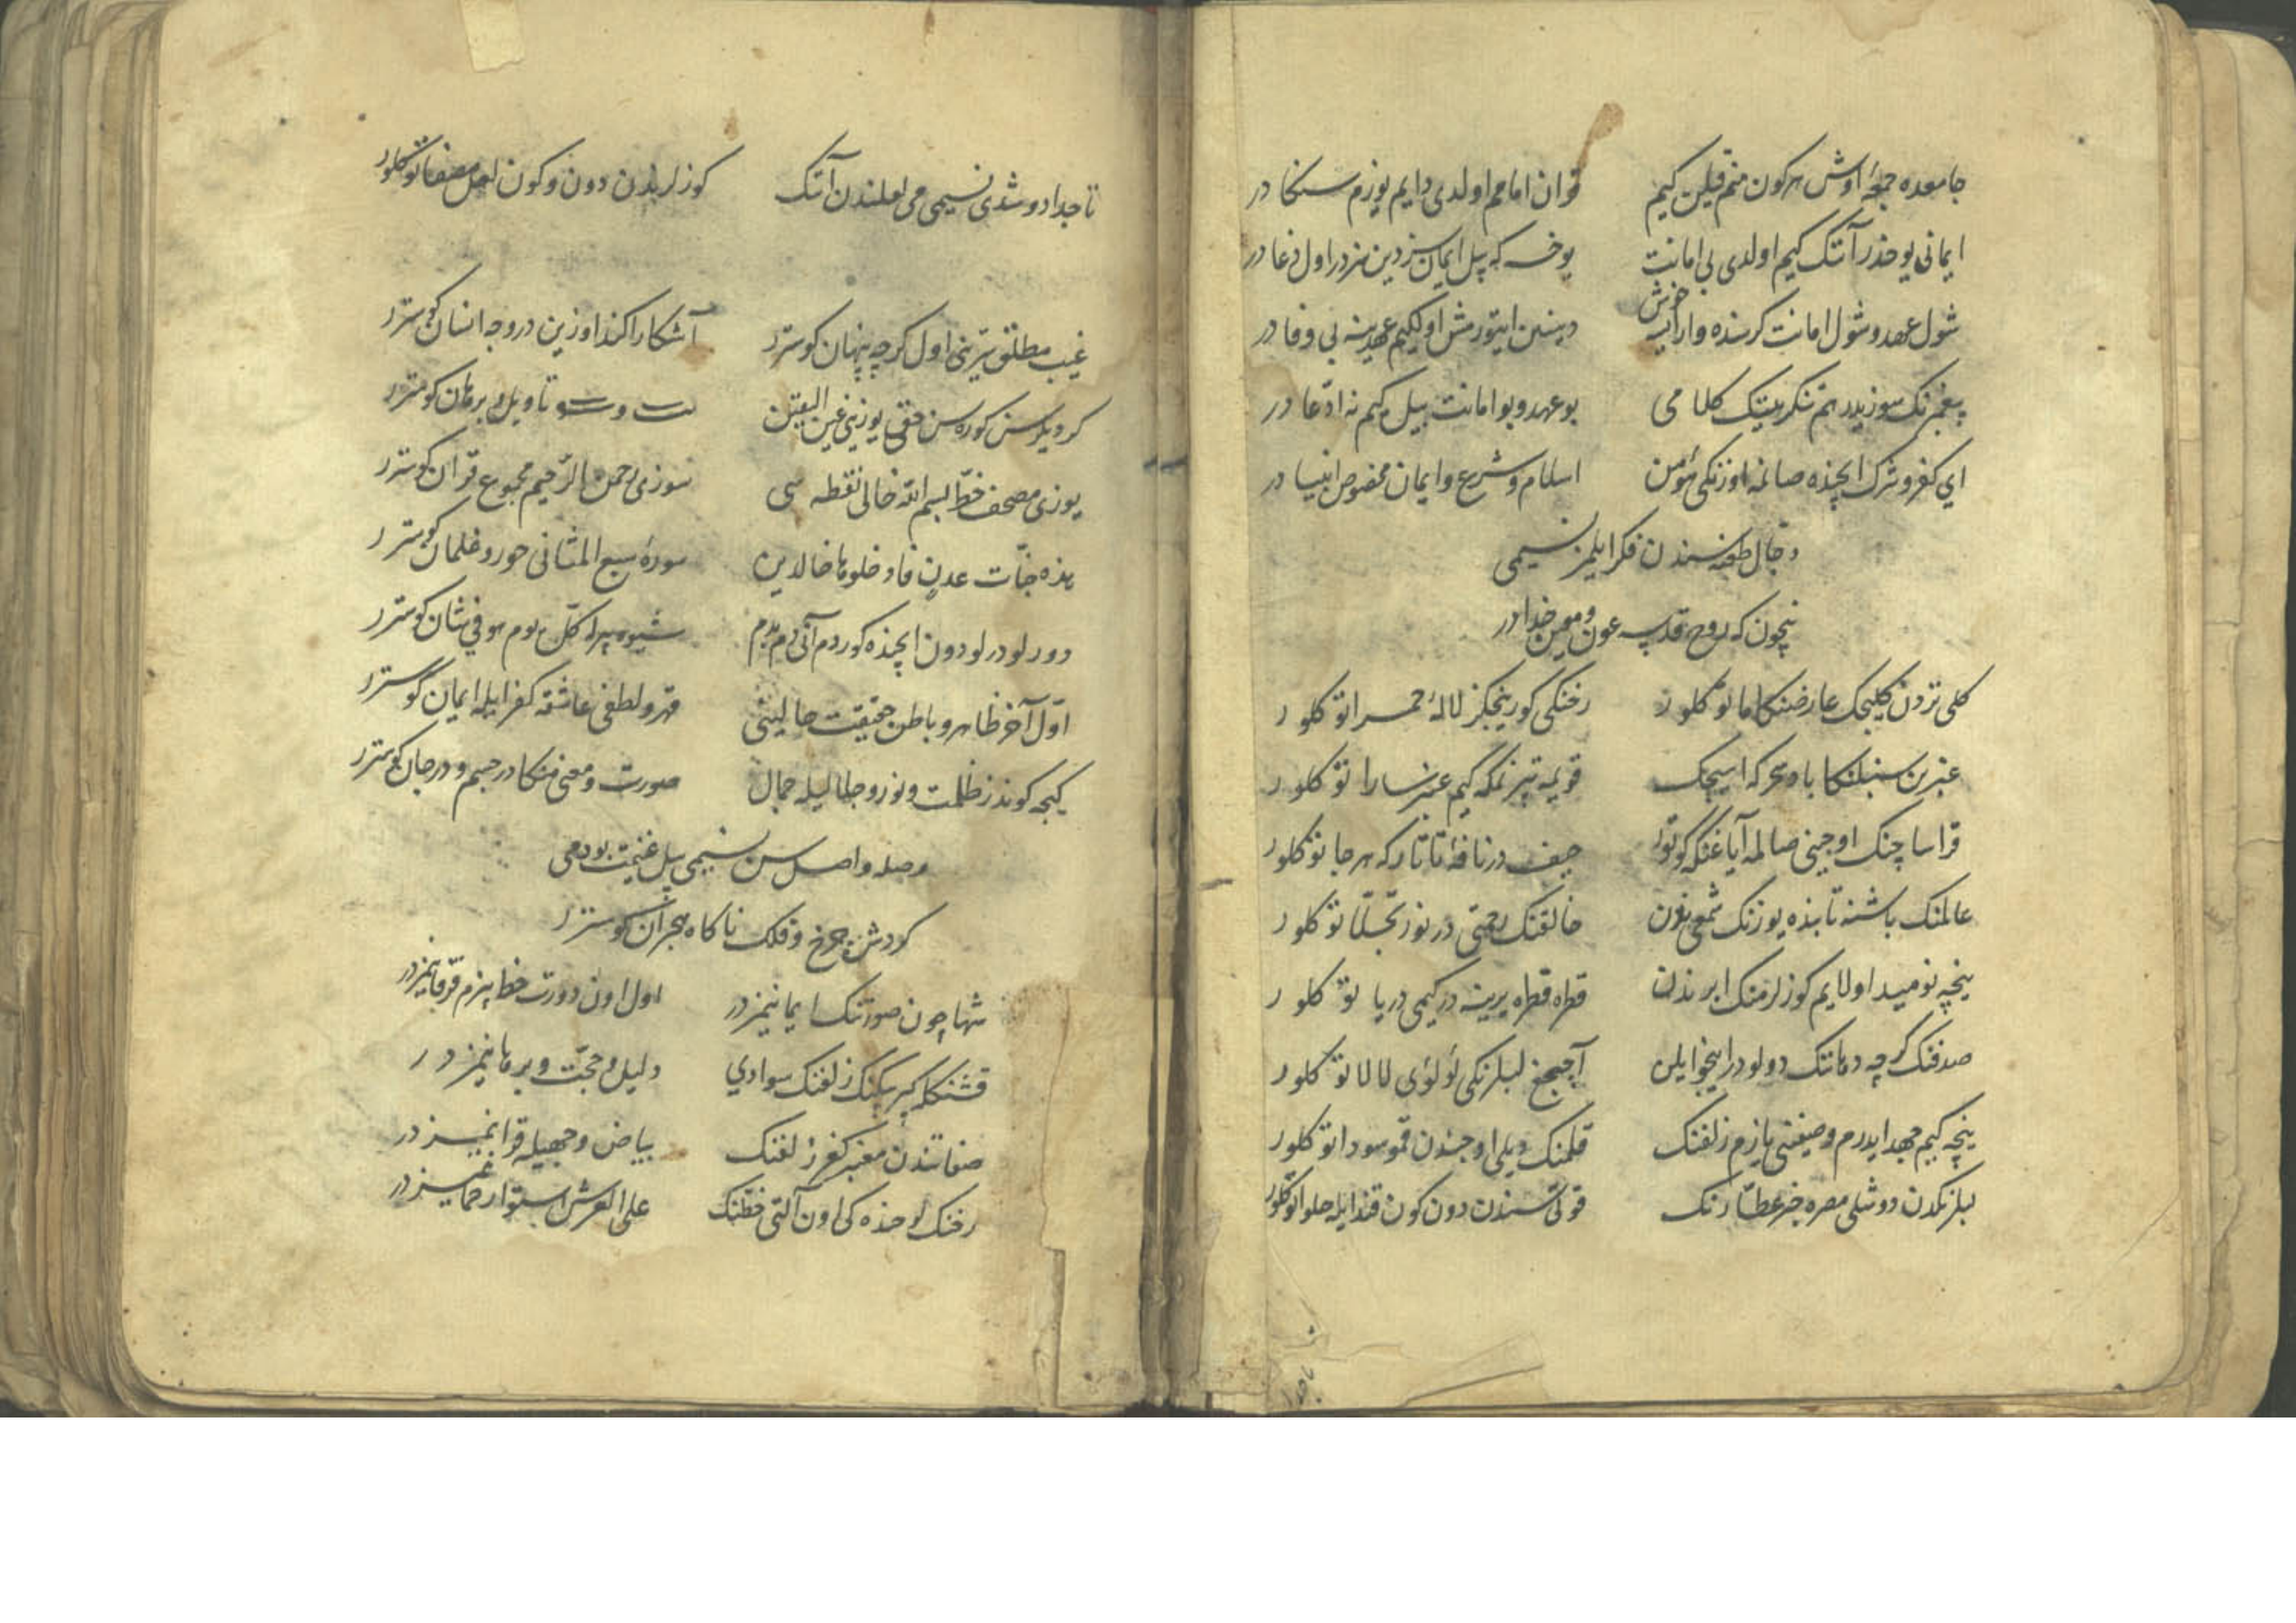 جامعده جمعه اوش هر کون منم قیلن کیم قران امامم اولدی دایم یوزم سنکا در
ایمانی یوخدر آنک کیم اولدی بی امانت یوخسه که بیل ایمان سز دین سزدر اول دغا در
شول عهد و شول امانت کر سنده وارایسه خوش دینین ایتورمش اولکیم عهدینه بی وفا در
پیغمبرنک سوزیدر هم تنکرینک کلامی بو عهد و بو امانت بیل کیم نه ادعا در
ای کفر و شرک ایچنده صانمه اوزنکی مؤمن اسلام و شرع و ایمان مخصوص انبیا در
دجال طعنه سندن فکر ایلمز نسیمی
نیچون که روح قدسه عون و معین خدا در
کلی تردن کلیجک عارضنکا ما تو کلور رخنکی کوریجکز لاله حمرا تو کلور
عنبرین سنبلنکا باد سحر که اسیجک قویمه تیز نمکه کیم عنبر سارا تو کلور
قرا ساچنک اوجینی صالمه آیاغنکه کوتور حیف در نافه تاتار که هر جا تو کلور
عالمنک باشنه تابنده یوزنک شمعی بغون خالقنک رحمتی در نور تجلا تو کلور
نیچه نومید اولایم کوزلرمنک ابرندن قطره قطره یرینه در کیمی دریا تو کلور
صدفنک کرچه دهاننک دولودر اینجو ایلن آچیجغ لبلرنکی لؤلؤی لالا تو کلور
نیچه کیم جهد ایدرم وصفنی یازم زلفنک قلمنک دیلی اوجندن قمو سودا تو کلور
لبلرنکدن دوشلی مصره خبر عطارنک قوتی سندن دون کون قند ایله حلوا تو کلور
تا جدا دوشدی نسیمی می لعلندن آنک کوزلرندن دون و کون لعل مصفا تو کلور
غیب مطلق سرینی اول کرچه پنهان کوسترر آشکارا کندوزین در وجه انسان کوسترر
کر دیلرسن کوره سن حقی یوزینی عین الیقین تأویل و برهان کوسترر
یوزی مصحف خط بسم الله خالی نقطه سی سوزی رحمن الرحیم مجموع قرآن کوسترر
هذه جنات عدن فادخلوها خالدین سوره سبع المثانی حور و غلمان کوسترر
دورلو درلو دون ایچنده کوردم آنی دم بدم شیوه پیرا کل یوم هو فی شان کوسترر
اول آخر ظاهر و باطن حقیقت حالینی قهر و لطفی عاشقه کفر ایله ایمان کوسترر
کیجه کوندز ظلمت و نور و جلا لیله جمال صورت و معنی منکا در جسم و در جان کوسترر
وصله واصل سن نسیمی بیل غنیمت بو دمی
کردش چرخ و فلک ناکاه هجران کوسترر
شها چون صورتنک ایمانیمزدر اول اون دورت خط بیزم فرقانیمزدر
قشنکله کبریکنک زلفنک سوادی دلیل و حجت و برهانیمزدر
صفاتندن معنبر کفر زلفنک بیاض وجهیله قرانیمزدر
رخنک لوحنده کی اون آلتی خطنک علی العرش استوا رحمانیمزدر